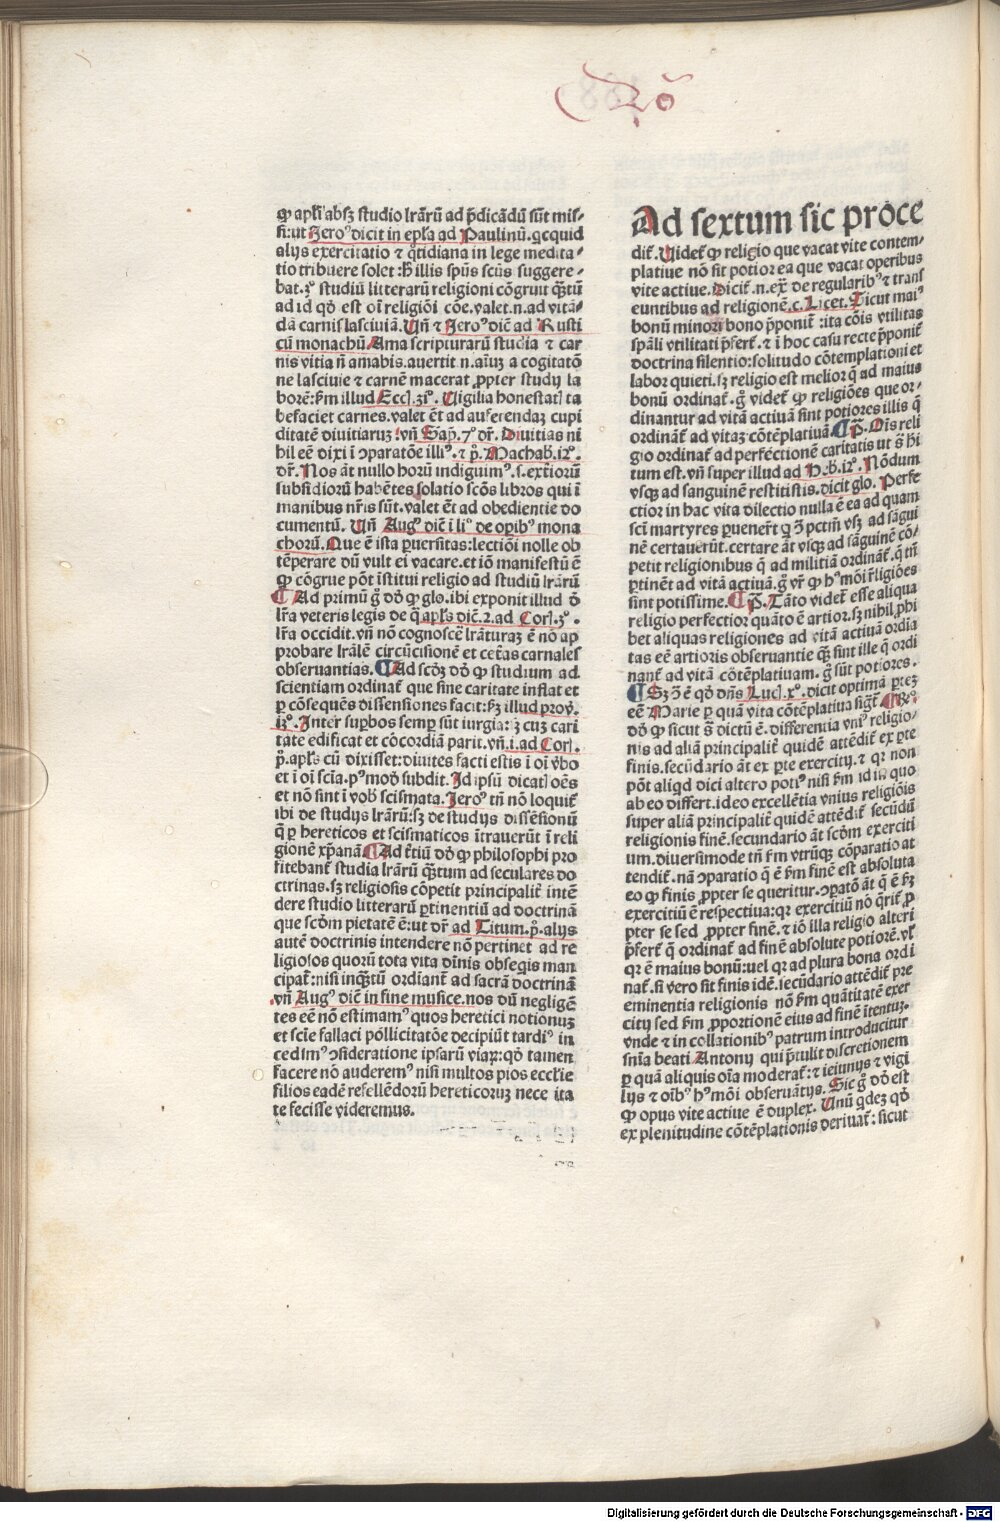 2ō
ꝙ apl'i absꝫ studio lr̄arū ad p̄dicādū sūt mis-
si: ut Jero⁹ dicit in epl'a ad Paulinū. qcquid
alijs exercitatio ⁊ q̄tidiana in lege medita-
tio tribuere solet: h̄ illis spūs scūs suggere-
bat. ꝫ° studiū litterarū religioni cōgruit q̄ꝫtū
ad id qd̄ est oī religiōi cōe. valet .n. ad vitā-
dā carnis lasciuiā. Vn̄ ⁊ Jero⁹ dic̄ ad Rusti
cū monachū. Ama scripturarū studia ⁊ car
nis vitia nō amabis. auertit .n. aīuꝫ a cogitatō
ne lasciuie ⁊ carnē macerat ꝓpter studij la
borē: ẜm illud Eccl. 31°. Vigilia honestat| ta
befaciet carnes. valet ēt ad auferendaꝫ cupi
ditatē diuitiaruꝫ: vn̄ Sap. 7° dr̄. Diuitias ni
hil eē dixi ī ꝯparatōe illi⁹. ⁊ p̄. Machab. 12°.
dr̄. Nos āt nullo horū indiguim⁹. s. extīorū
subsidiorū habētes solatio scōs libros qui ī
manibus nr̄is sūt. valet ēt ad obedientie do
cumentū. Vn̄ Aug⁹ dic̄ ī li° de oꝑib⁹ mona
chorū. Que ē ista ꝑuersitas: lectiōi nolle ob
tēperare dū vult ei vacare. et iō manifestū ē
ꝙ cōgrue pōt īstitui religio ad studiū lr̄arū
¶ Ad primū g̊ dō ꝙ glo. ibi exponit illud d̄
lr̄a veteris legis de q̄ apl's dic̄. 2. ad Cor|. 3°.
lr̄a occidit. vn̄ nō cognoscē lr̄aturaꝫ ē nō ap
probare lr̄alē circūcisionē et cet̄as carnales
obseruantias. ¶ Ad scd̄ꝫ dō ꝙ studium ad
scientiam ordinat̄ que sine caritate inflat et
ꝑ cōsequēs dissensiones facit: ẜꝫ illud prov̄.
13°. Inter suꝑbos semꝑ sūt iurgia: ꝫ cuꝫ cari
tate edificat et cōcordiā parit. vn̄ .i. ad Cor|.
p̄. apl's cū dixisset: diuites facti estis ī oī v̄bo
et ī oī scīa. p⁹ mod̄ subdit. Id ipsū dicat| oēs
et nō sint ī vob̄ scismata. Jero⁹ tn̄ nō loquit̄
ibi de studijs lr̄arū: sꝫ de studijs dissēsionū
q̄ ꝑ hereticos et scismaticos ītrauerūt ī reli
gionē xp̄anā. ¶ Ad t̄tiū dō ꝙ philosophi pro
fitebant̄ studia lr̄arū q̄ꝫtum ad seculares do
ctrinas. sꝫ religiosis cōpetit principalit̄ intē
dere studio litterarū ꝑtinentiū ad doctrinā
que scd̄m pietatē ē: ut dr̄ ad Titum. p̄. alijs
autē doctrinis intendere nō pertinet ad re
ligiosos quorū tota vita dīnis obseqis man
cipat̄: nisi inq̄ꝫtū ordiant̄ ad sacrā doctrinā
vn̄ Aug⁹ dic̄ in fine musice. nos dū negligē
tes eē nō estimam⁹ quos heretici notionuꝫ
et scīe fallaci pollicitatōe decipiūt tardi⁹ in
cedim⁹ ꝯsideratione ipsarū viaꝝ: qd̄ tamen
facere nō auderem⁹ nisi multos pios ecclīe
filios eadē refellēdorū hereticoruꝫ nece ita
te fecisse videremus.
Ad sextum sic proce
dit̄. Videt̄ ꝙ religio que vacat vite contem-
platiue nō sit potior ea que vacat operibus
vite actiue. Dicit̄ .n. ex̄ de regularib⁹ ⁊ trans
euntibus ad religionē. c. Licet. Sicut mai⁹
bonū minori bono p̄ponit̄: ita cōis vtilitas
sp̄ali vtilitati p̄fert̄. ⁊ ī hoc casu recte p̄ponit̄
doctrina silentio: solitudo cōtemplationi et
labor quieti. sꝫ religio est melior q̄ ad maius
bonū ordinat̄. g̊ videt̄ ꝙ religiōes que or-
dinantur ad vitā actiuā sint potiores illis q̄
ordināt̄ ad vitaꝫ cōtēplatiuā. ¶ P̄. Oīs reli
gio ordinat̄ ad perfectionē caritatis ut s̄ hi
tum est. vn̄ super illud ad H.b. 12°. Nōdum
vsqꝫ ad sanguinē restitistis. dicit glo. Perfe
ctior in hac vita dilectio nulla ē ea ad quam
scī martyres ꝑuenerūt q ꝯ pctm̄ vsqꝫ ad sāgui
nē certauerūt. certare āt vsqꝫ ad sāguinē cō-
petit religionibus q̄ ad militiā ordinat̄. q̄ tn̄
ꝑtinēt ad vitā actiuā. g̊ vr̄ ꝙ h⁹mōi r̄ligiōes
sint potissime. ¶ P̄. Tāto videt̄ esse aliqua
religio perfectior quāto ē artior. sꝫ nihil ꝓhi
bet aliquas religiones ad vitā actiuā ordīa
tas eē artioris obseruantie q̄ꝫ sint ille q̄ ordi
nant̄ ad vitā cōtēplatiuam. g̊ sūt potiores.
¶ Sꝫ ꝯ ē qd̄ dn̄s Luc|. x°. dicit optimā ꝑteꝫ
eē Marie ꝑ quā vita cōtēplatiua sigt̄. ¶ Rͦ.
dō ꝙ sicut s̄ dictū ē. differentia vni⁹ religio-
nis ad aliā principalit̄ quidē attēdit̄ ex ꝑte
finis. secūdario āt ex ꝑte exercitij. ⁊ qꝛ non
pōt aliqd dici altero poti⁹ nisi ẜm id in quo
ab eo differt. ideo excellētia vnius religiōis
super aliā principalit̄ quidē attēdit̄ secūdū
religionis finē. secundario āt scd̄m exerciti
um. diuersimode tn̄ ẜm vtrūqꝫ cōparatio at
tendit̄. nā ꝯparatio q̄ ē ẜm finē est absoluta
eo ꝙ finis ꝓpter se queritur. ꝯparatō āt q̄ ē ẜꝫ
exercitiū ē respectiua: qꝛ exercitiū nō q̄rit̄ ꝓ
pter se sed ꝓpter finē. ⁊ iō illa religio alteri
p̄fert̄ q̄ ordinat̄ ad finē absolute potiorē. vl'
qꝛ ē maius bonū: uel qꝛ ad plura bona ordi
nat̄. si vero sit finis idē. secūdario attēdit̄ pre
eminentia religionis nō ẜm quātitatē exer
citij sed ẜm ꝓportionē eius ad finē ītentuꝫ.
vnde ⁊ in collationib⁹ patrum introducitur
snīa beati Antonij qui p̄tulit discretionem
ꝑ quā aliquis oīa moderat̄: ⁊ ieiunijs ⁊ vigi
lijs ⁊ oīb⁹ h⁹mōi obseruātijs. Sic g̊ dō est
ꝙ opus vite actiue ē duplex. Vnū qdeꝫ qd̄
ex plenitudine cōtēplationis deriuat̄: sicut
Digitalisierung gefördert durch die Deutsche Forschungsgemeinschaft - DFG